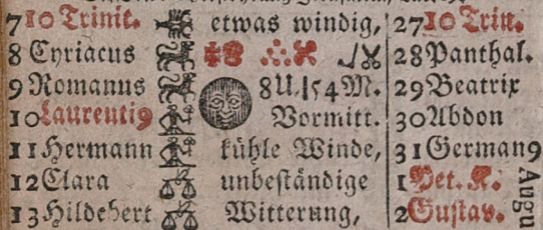 7 10 Trinit. etwas windig, 27 10 Trin.
8 Cyriacus 28 Panthal.
9 Romanus 8 U. 54 M. 29 Beatrix
10 Laurenti9 Vormitt. 30 Abdon
11 Hermann kühle Winde, 31 German9
12 Clara unbeständige 1 Pet. K.
13 Hildebert Witterung, 2 Gustav.
Augu